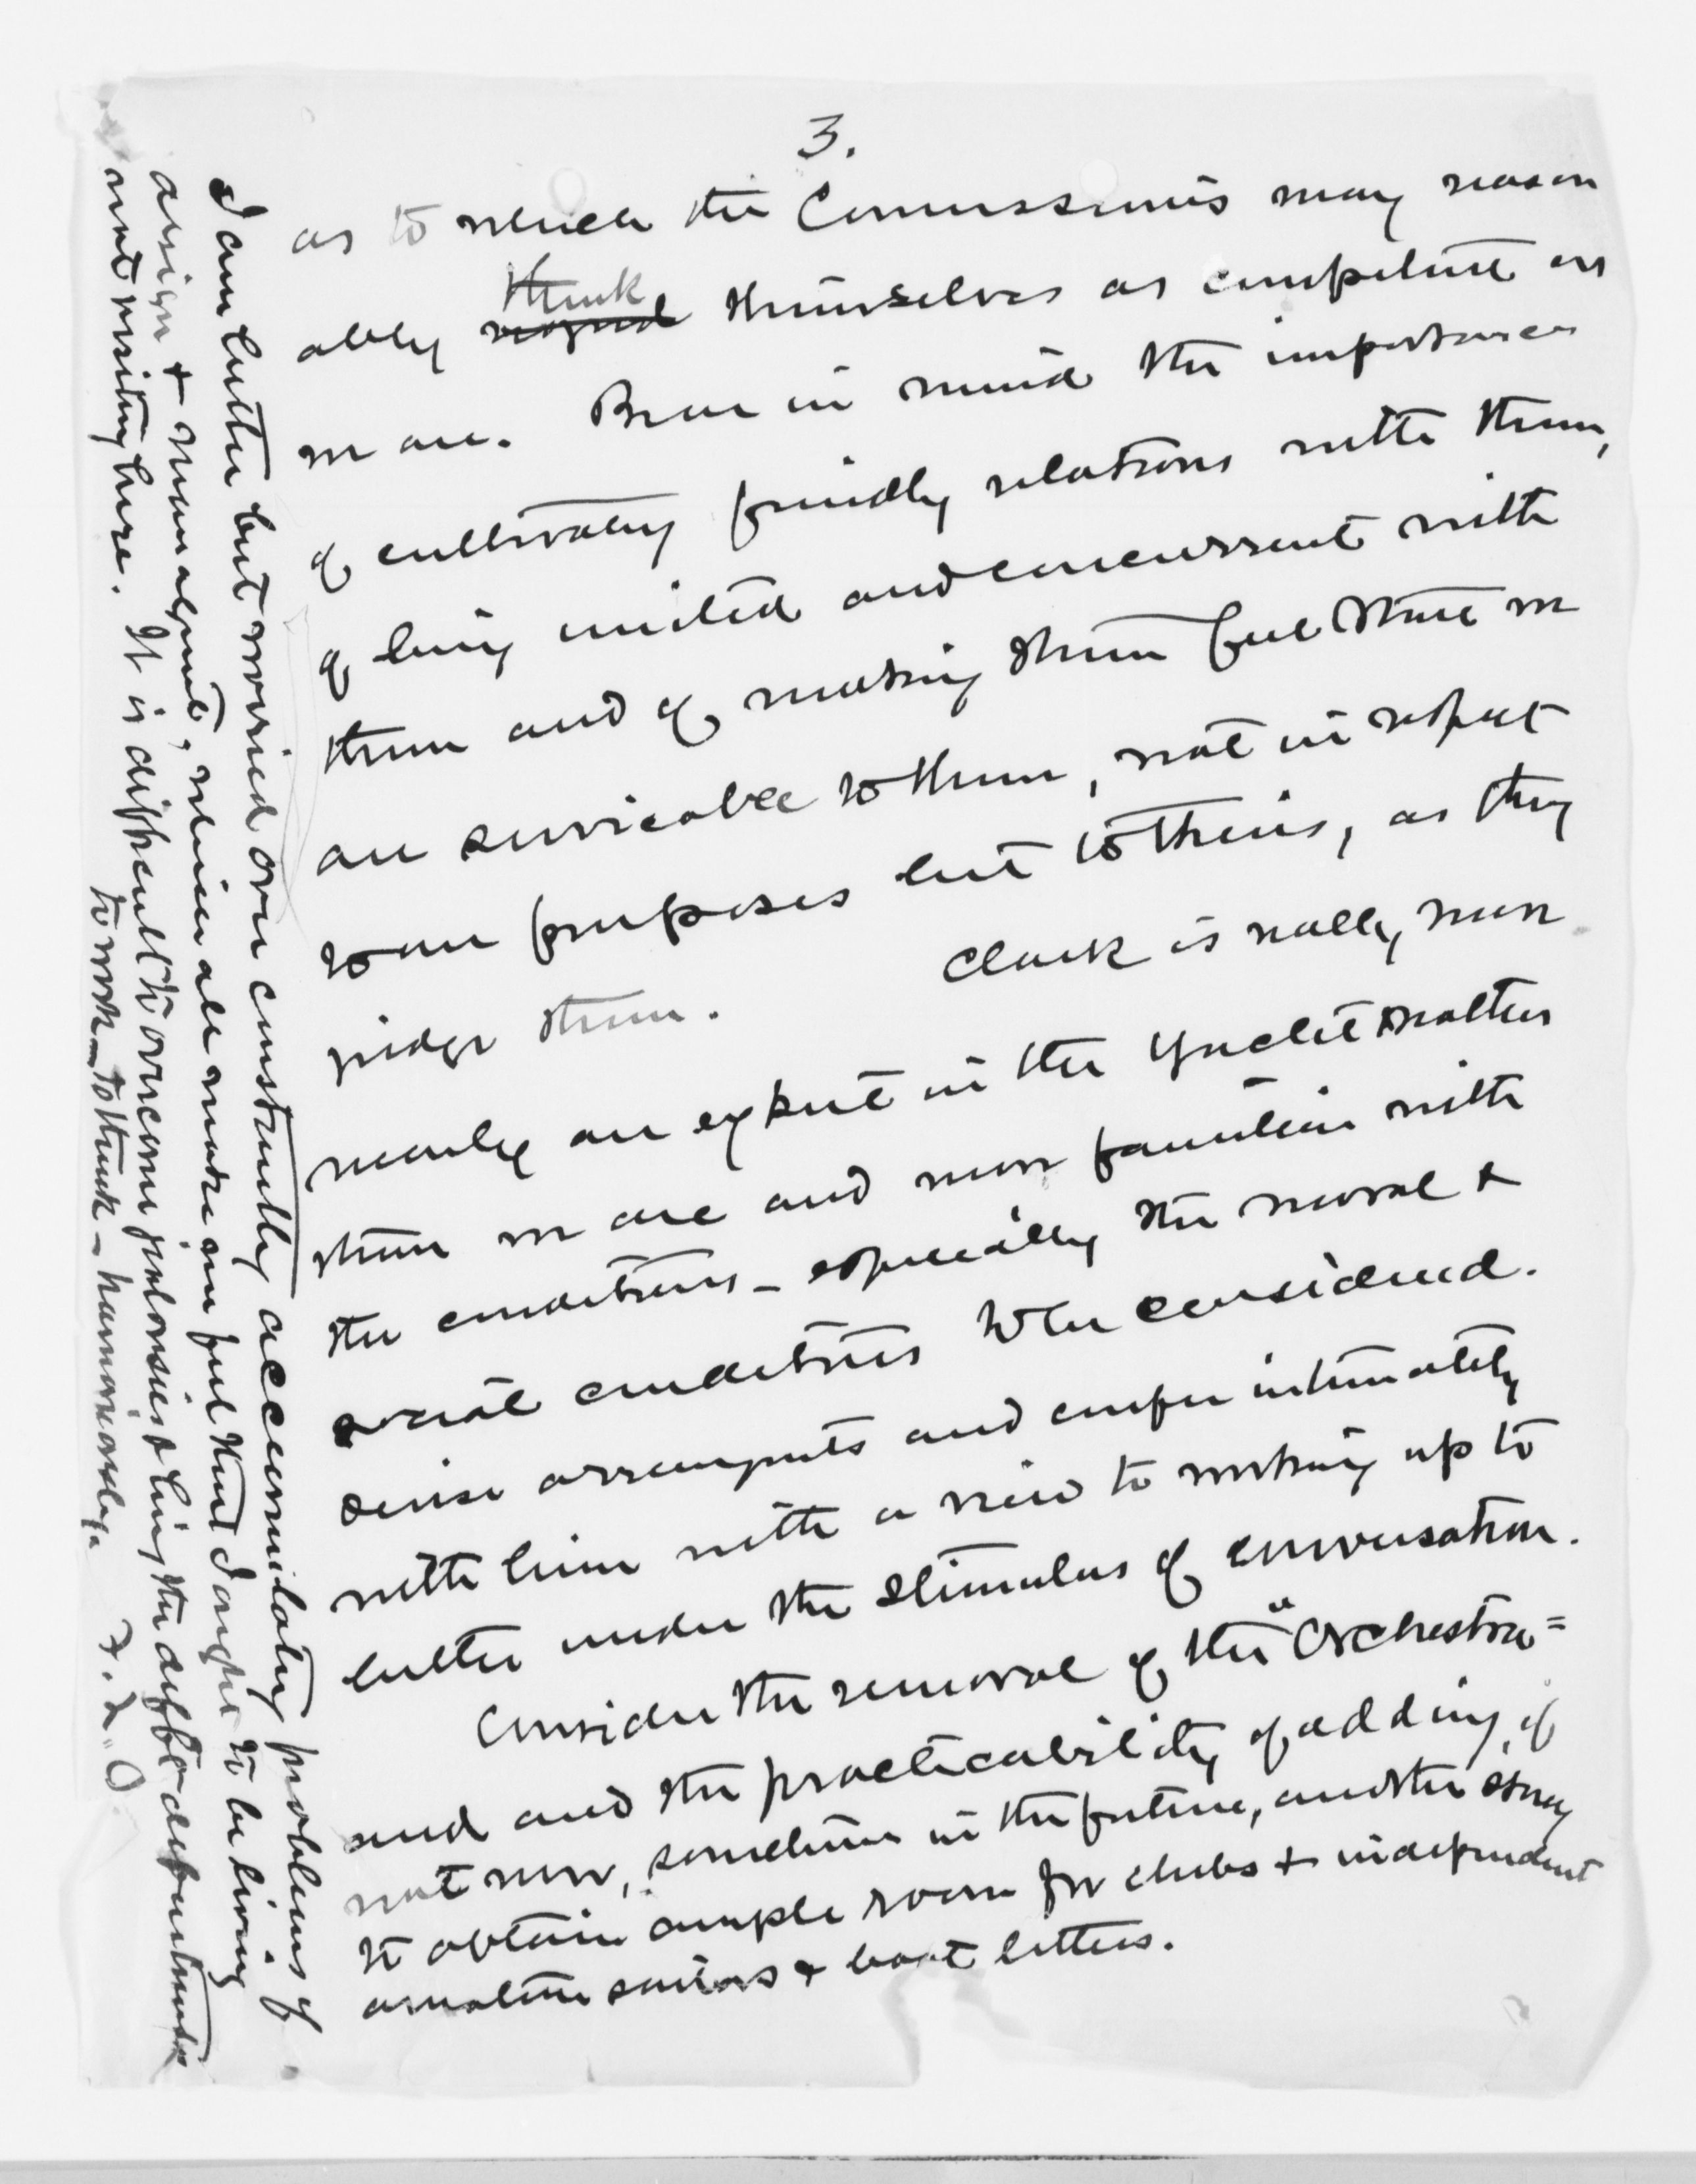 3.
as to which the Commissioners may reason
ably think themselves as competent as
we are. Bear in mind the importance
of cultivating friendly relations with them,
of being united and concurrent with
them and of making them feel that we
are serviceable to them, not in respect
to our purposes but to theirs, as they
judge them. Clark is really more
nearly an expert in the Yacht matter
than we are and more familiar with
the conditions - especially the moral &
social conditions to be considered.
Devise arrangements and confer intimately
with him with a view to working up to
better under the stimulus of conversation.
Consider the removal of the "Orchestra"
and and the practicability of adding, if
not now, sometime in the future, another story
to obtain ample room for clubs & independent
amateur sailors & boat letters.
I am better but worried over constantly accumulating problems of
design & management, which all make me feel that I ought to be living
not visiting here. It is difficult to overcome jealousies & bring the diff't departments
to work - to think - harmoniously.
F. L. O.